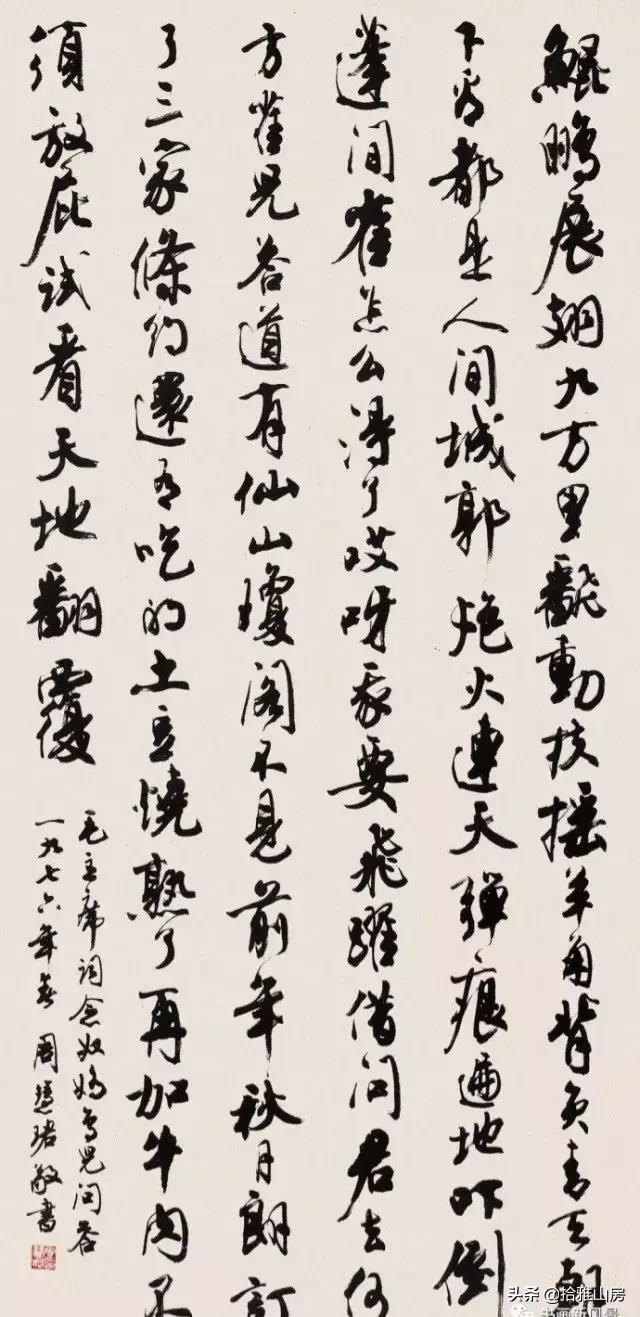 鯤鵬展翅九万里飜動扶摇羊角背負青天朝
下看都是人间城郭炮火連天彈痕遍地吓倒
蓬间雀怎么得了哎呀我要飛躍借问君去何
方雀兒答道有仙山瓊阁不見前年秋月朗訂
了三家條约還有吃的土豆燒熟了再加牛肉不
須放屁試看天地翻覆
毛主席词念奴嬌鳥兒问答
一九七六年春 周慧珺敬書
头条 @拾雅山房